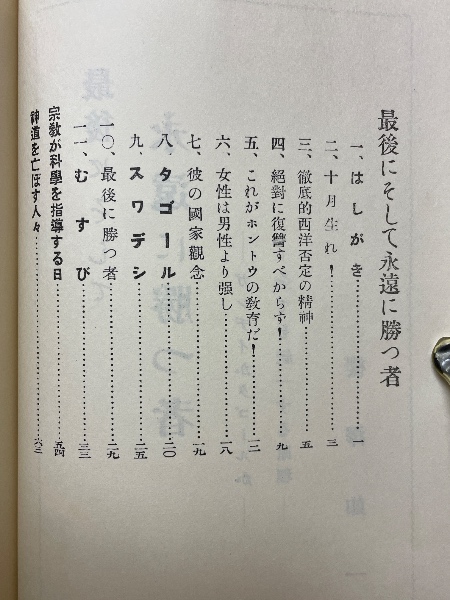 最後にそして永遠に勝つ者
一、はしがき……一
二、十月生れ!……三
三、徹底的西洋否定の精神……五
四、絕對に復讐すべからず!……九
五、これがホントウの教育だ!……一二
六、女性は男性より强し……一八
七、彼の國家觀念……一九
八、タゴール……二〇
九、スワデシ……二五
一〇、最後に勝つ者……二九
一一、むすび……三三
宗教が科學を指導する日……五四
神道を亡ぼす人々……六三